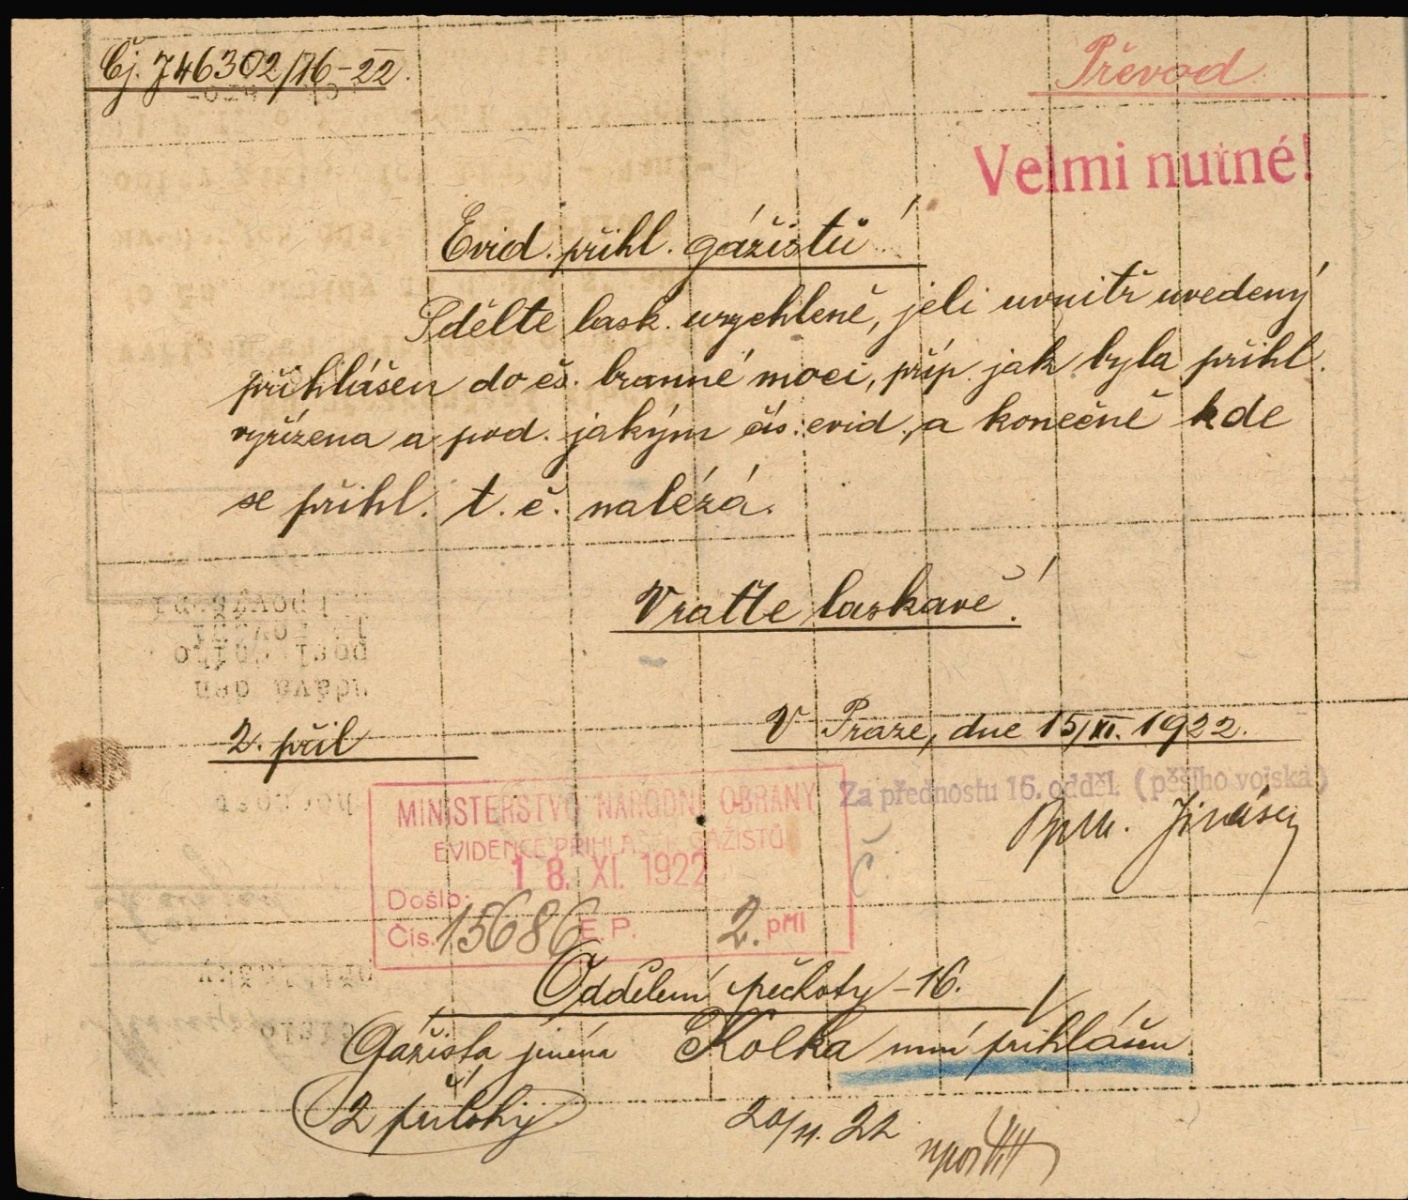 Čj. 746302/16-22.
Převod.
Velmi nutné!
Evid. přihl. gážistů!
Sdělte lask. urychleně, jeli uvnitř uvedený
přihlášen do čs. branné moci, příp. jak byla přihl.
vyřízena a pod. jakým čís. evid., a konečně kde
se přihl. t. č. nalézá.
Vraťte laskavě!
2. příl
V Praze, dne 15/XI. 1922.
Za přednostu 16. odděl. (pěšího vojska)
MINISTERSTVO NÁRODNÍ OBRANY
EVIDENCE PŘIHLÁŠEK GÁŽISTŮ
18. XI. 1922
Došlo:
Čís. 15686 E. P. 2. příl
Oddělení pěchoty -16.
Gážista jména Kolka není přihlášen
2 přílohy.
20/11. 22